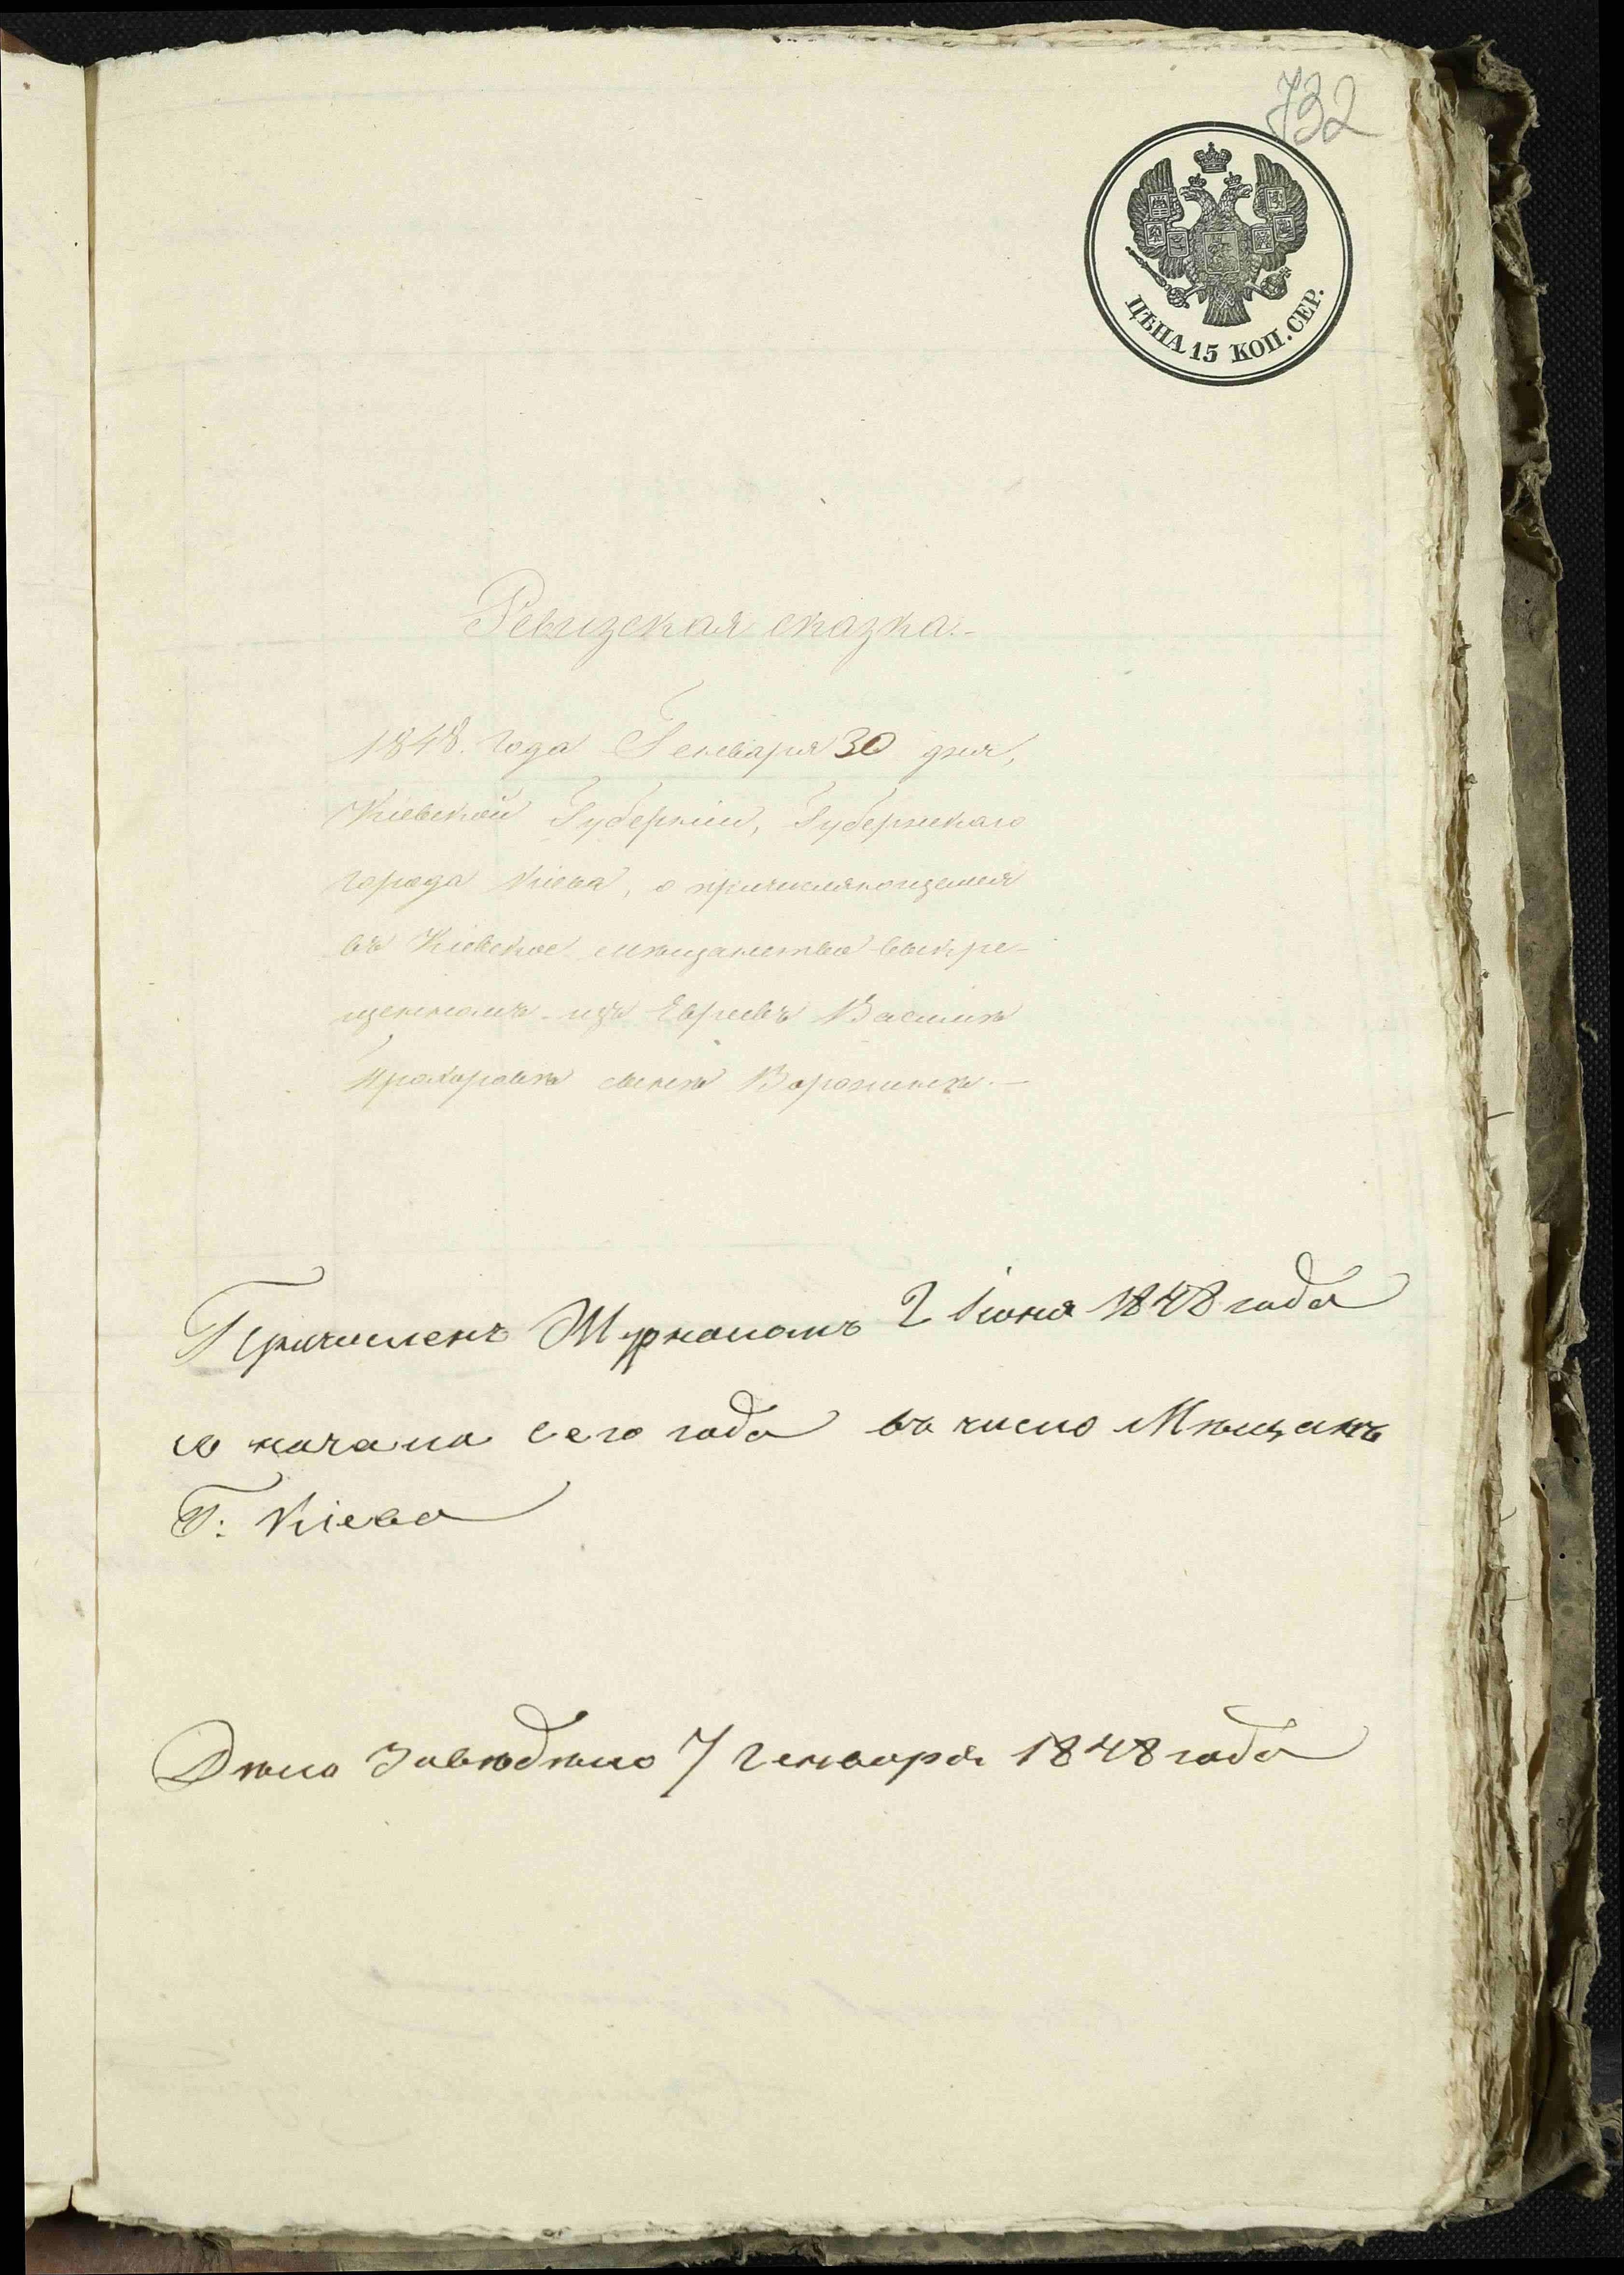 732
ЦѢНА 15 КОП. СЕР.
Ревизская сказка.-
1848. года Генваря 30 дня,
Кіевской Губерніи, Губернскаго
города Кіева, о причисляющемся
въ Кіевское мѣщанство выкре-
щенномъ изъ Евреевъ Василіѣ
Прохоровѣ сынѣ
Причисленъ Журналомъ 2 Іюня 1848 года
съ начала сего года въ число Мѣщанъ
Г: Кіева
Дѣло Завѣдѣно 7 Генваря 1848 года